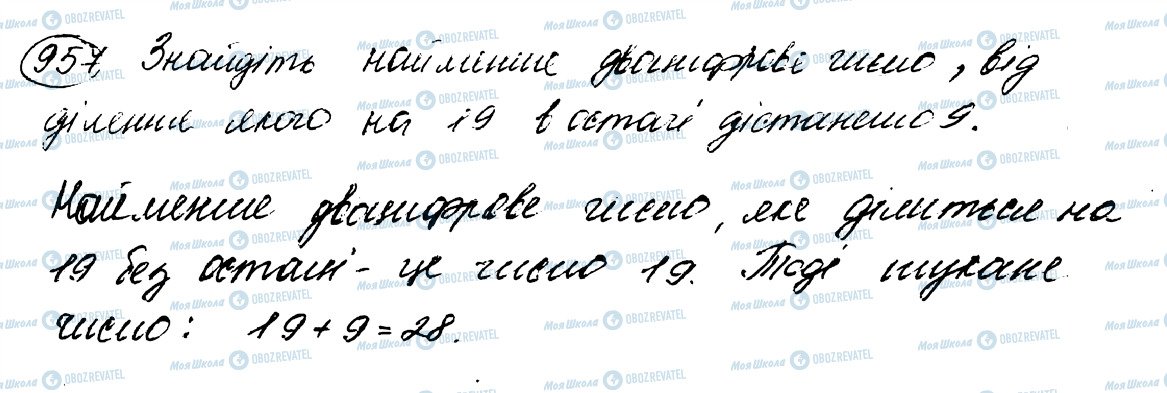 957, Знайдіть найменше двоцифрове число, від
ділення якого на 19 в остачі дістанемо 9.
Найменше двоцифрове число, яке ділиться на
19 без остачі - це число 19. Тоді шукане
число: 19 + 9 = 28.